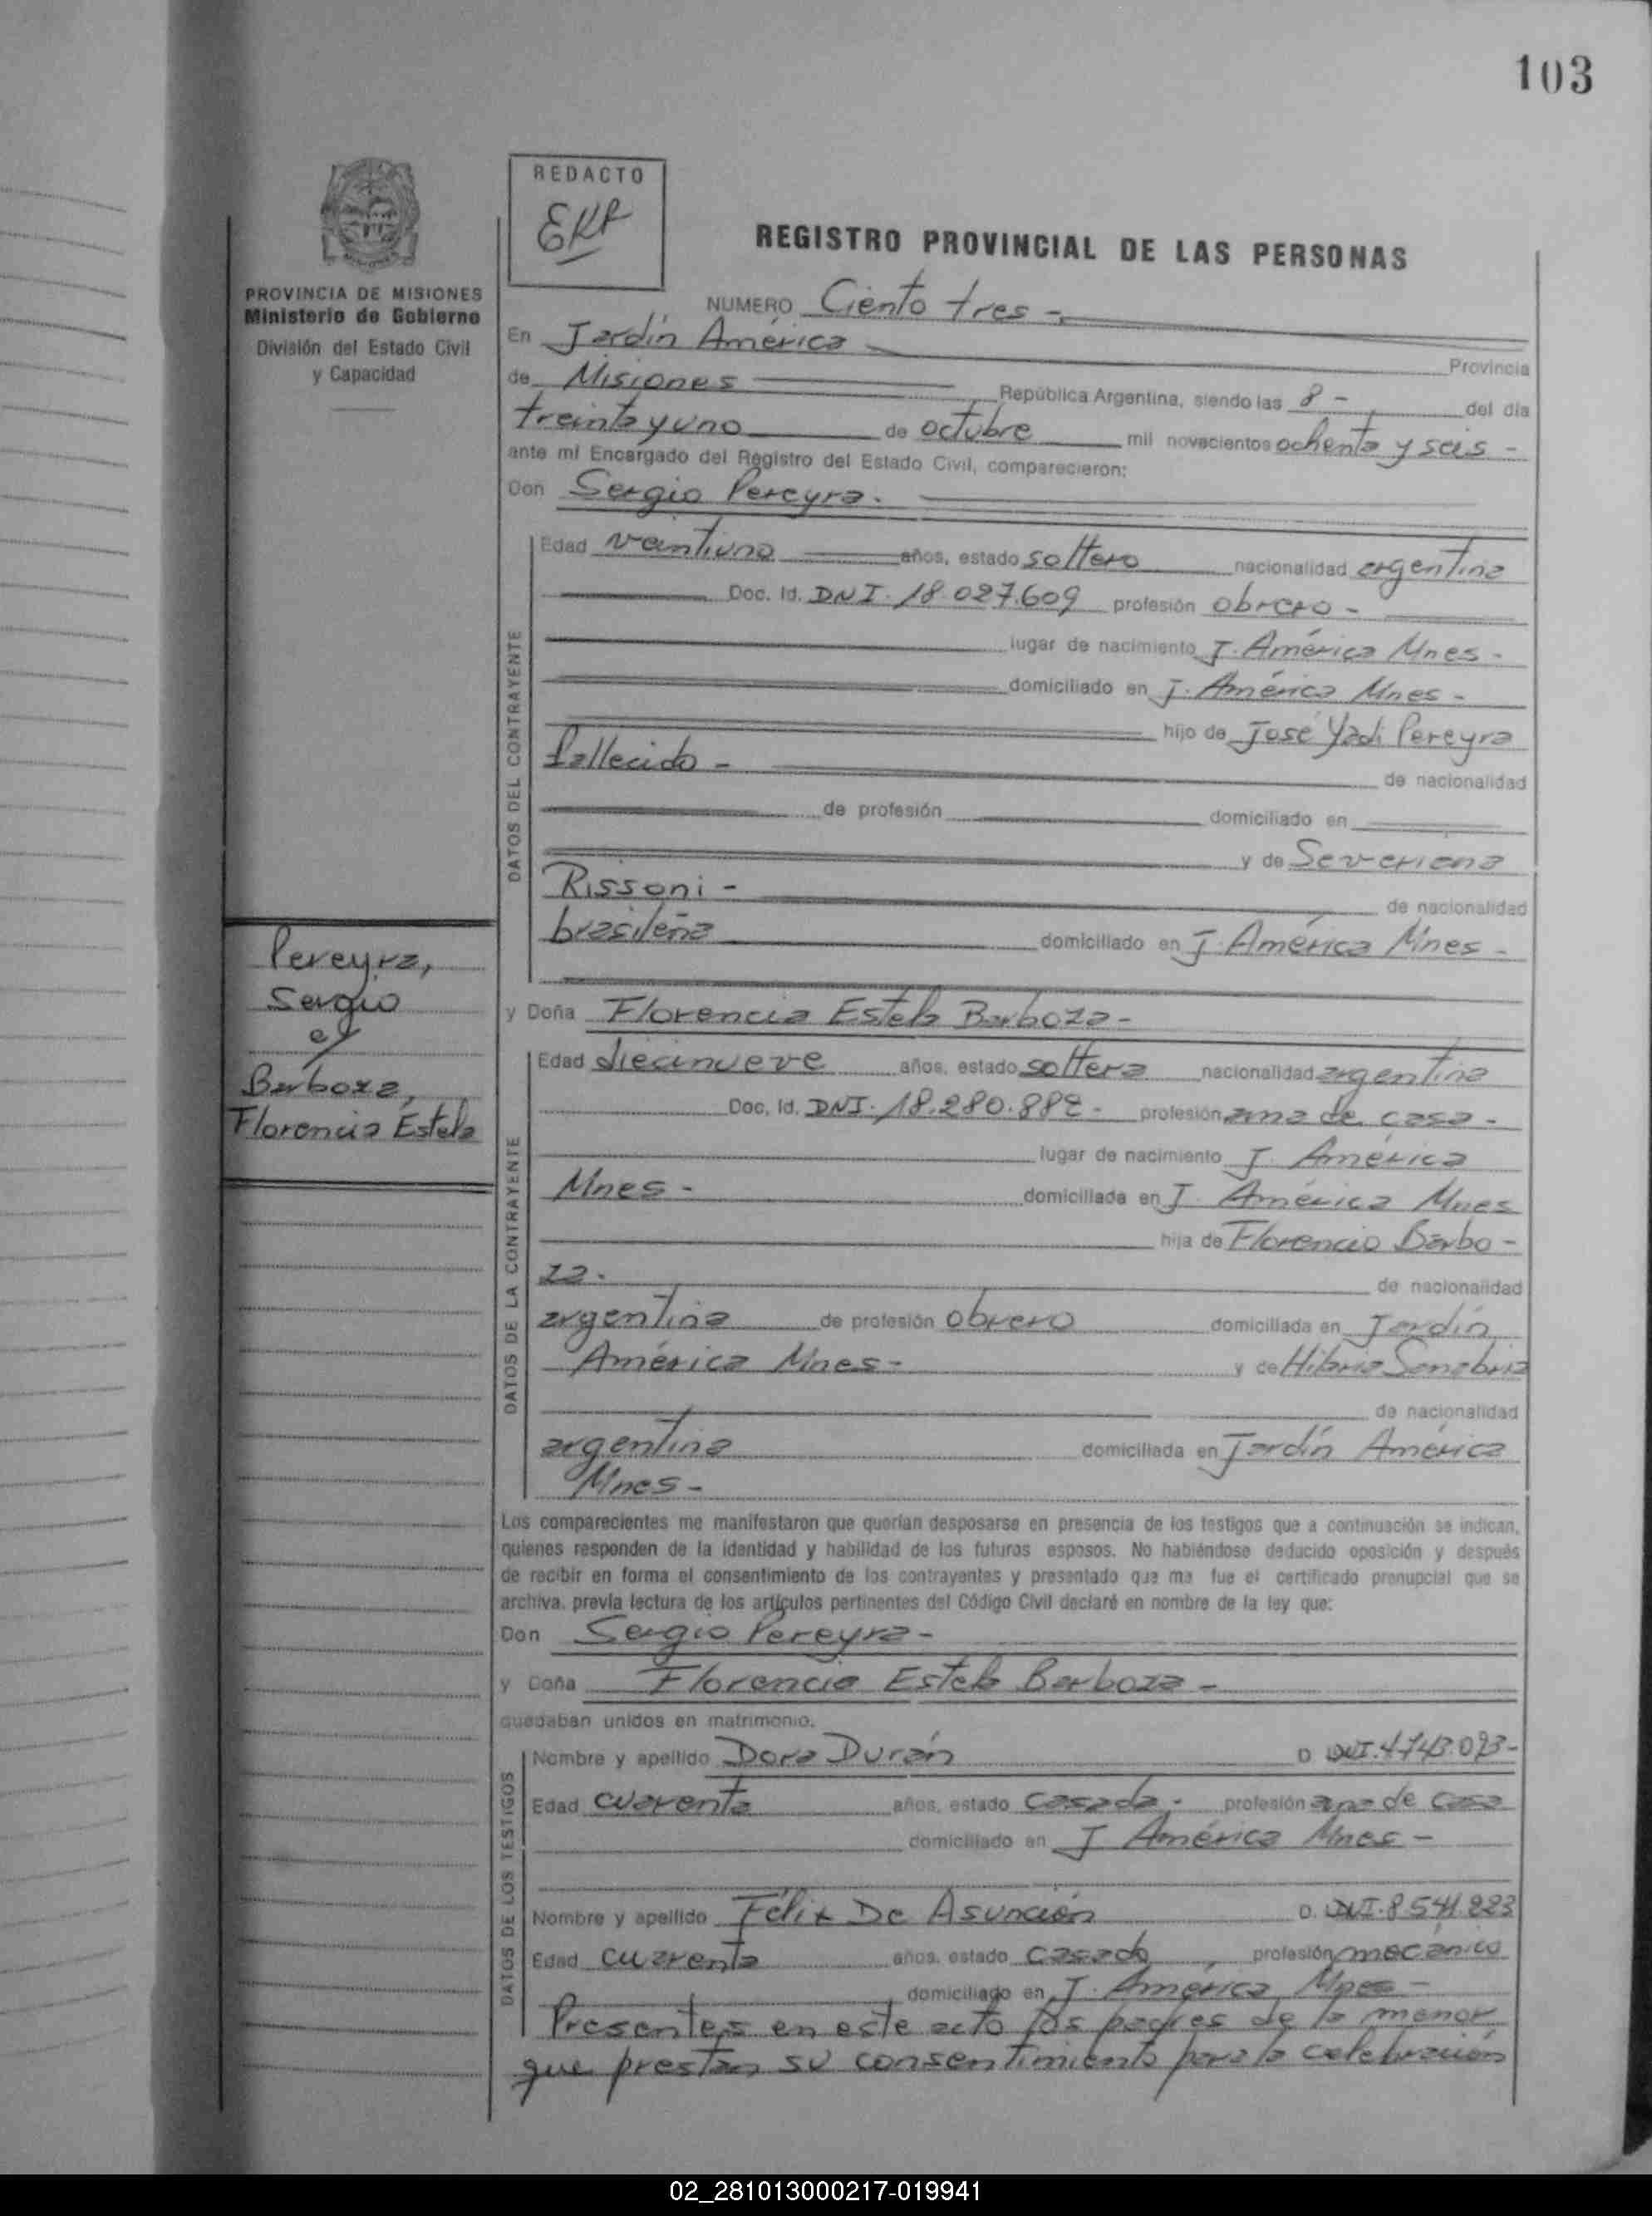 103
REDACTO
REGISTRO PROVINCIAL DE LAS PERSONAS
PROVINCIA DE MISIONES
Ministerio de Gobierno
División del Estado Civil
y Capacidad
NUMERO Ciento tres -
En Jardín América Provincia
de Misiones República Argentina, siendo las 8 - del día
treinta y uno de octubre mil novecientos ochenta y seis -
ante mí Encargado del Registro del Estado Civil, comparecieron:
Don Sergio Pereyra.
DATOS DEL CONTRAYENTE
Edad veintiuno años, estado soltero nacionalidad argentina
Doc. Id. DNI. 18.027.609 profesión obrero -
lugar de nacimiento J. América Mnes -
domiciliado en J. América Mnes -
hijo de José Yadi Pereyra
fallecido - de nacionalidad
de profesión domiciliado en
y de Severiana
Rissoni - de nacionalidad
brasileña domiciliado en J. América Mnes -
Pereyra,
Sergio
c/
Barboza,
Florencia Estela
y Doña Florencia Estela Barboza -
DATOS DE LA CONTRAYENTE
Edad diecinueve años, estado soltera nacionalidad argentina
Doc. Id. DNI. 18.280.882 - profesión ama de casa -
lugar de nacimiento J. América
Mnes - domiciliada en J. América Mnes
hija de Florencio Barbo -
za. de nacionalidad
argentina de profesión obrero domiciliada en Jardín
América Mnes - y de Hilaria Sanabria
de nacionalidad
argentina domiciliada en Jardín América
Mnes -
Los comparecientes me manifestaron que querían desposarse en presencia de los testigos que a continuación se indican,
quienes responden de la identidad y habilidad de los futuros esposos. No habiéndose deducido oposición y después
de recibir en forma el consentimiento de los contrayentes y presentado que me fue el certificado prenupcial que se
archiva, previa lectura de los artículos pertinentes del Código Civil declaré en nombre de la ley que:
Don Sergio Pereyra -
y Doña Florencia Estela Barboza -
quedaban unidos en matrimonio.
DATOS DE LOS TESTIGOS
Nombre y apellido Dora Durán D DNI. 4.743.093 -
Edad cuarenta años, estado casada - profesión ama de casa
domiciliado en J América Mnes -
Nombre y apellido Félix De Asunción D. DNI. 8 541.223
Edad cuarenta años, estado casado profesión mecánico
domiciliado en J. América Mnes -
Presentes en este acto los padres de la menor
que prestan su consentimiento para la celebración
02_281013000217-019941